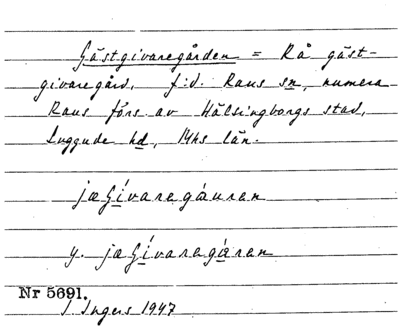 Gästgivaregården = Rå gäst-
givaregård, f.d. Raus sn, numera
Raus förs. av Hälsingborgs stad,
Luggude hd, Mhs län.
jæʃívaregáuren
y. jæʃívaregáren
Nr 5691.
I. Ingers 1947